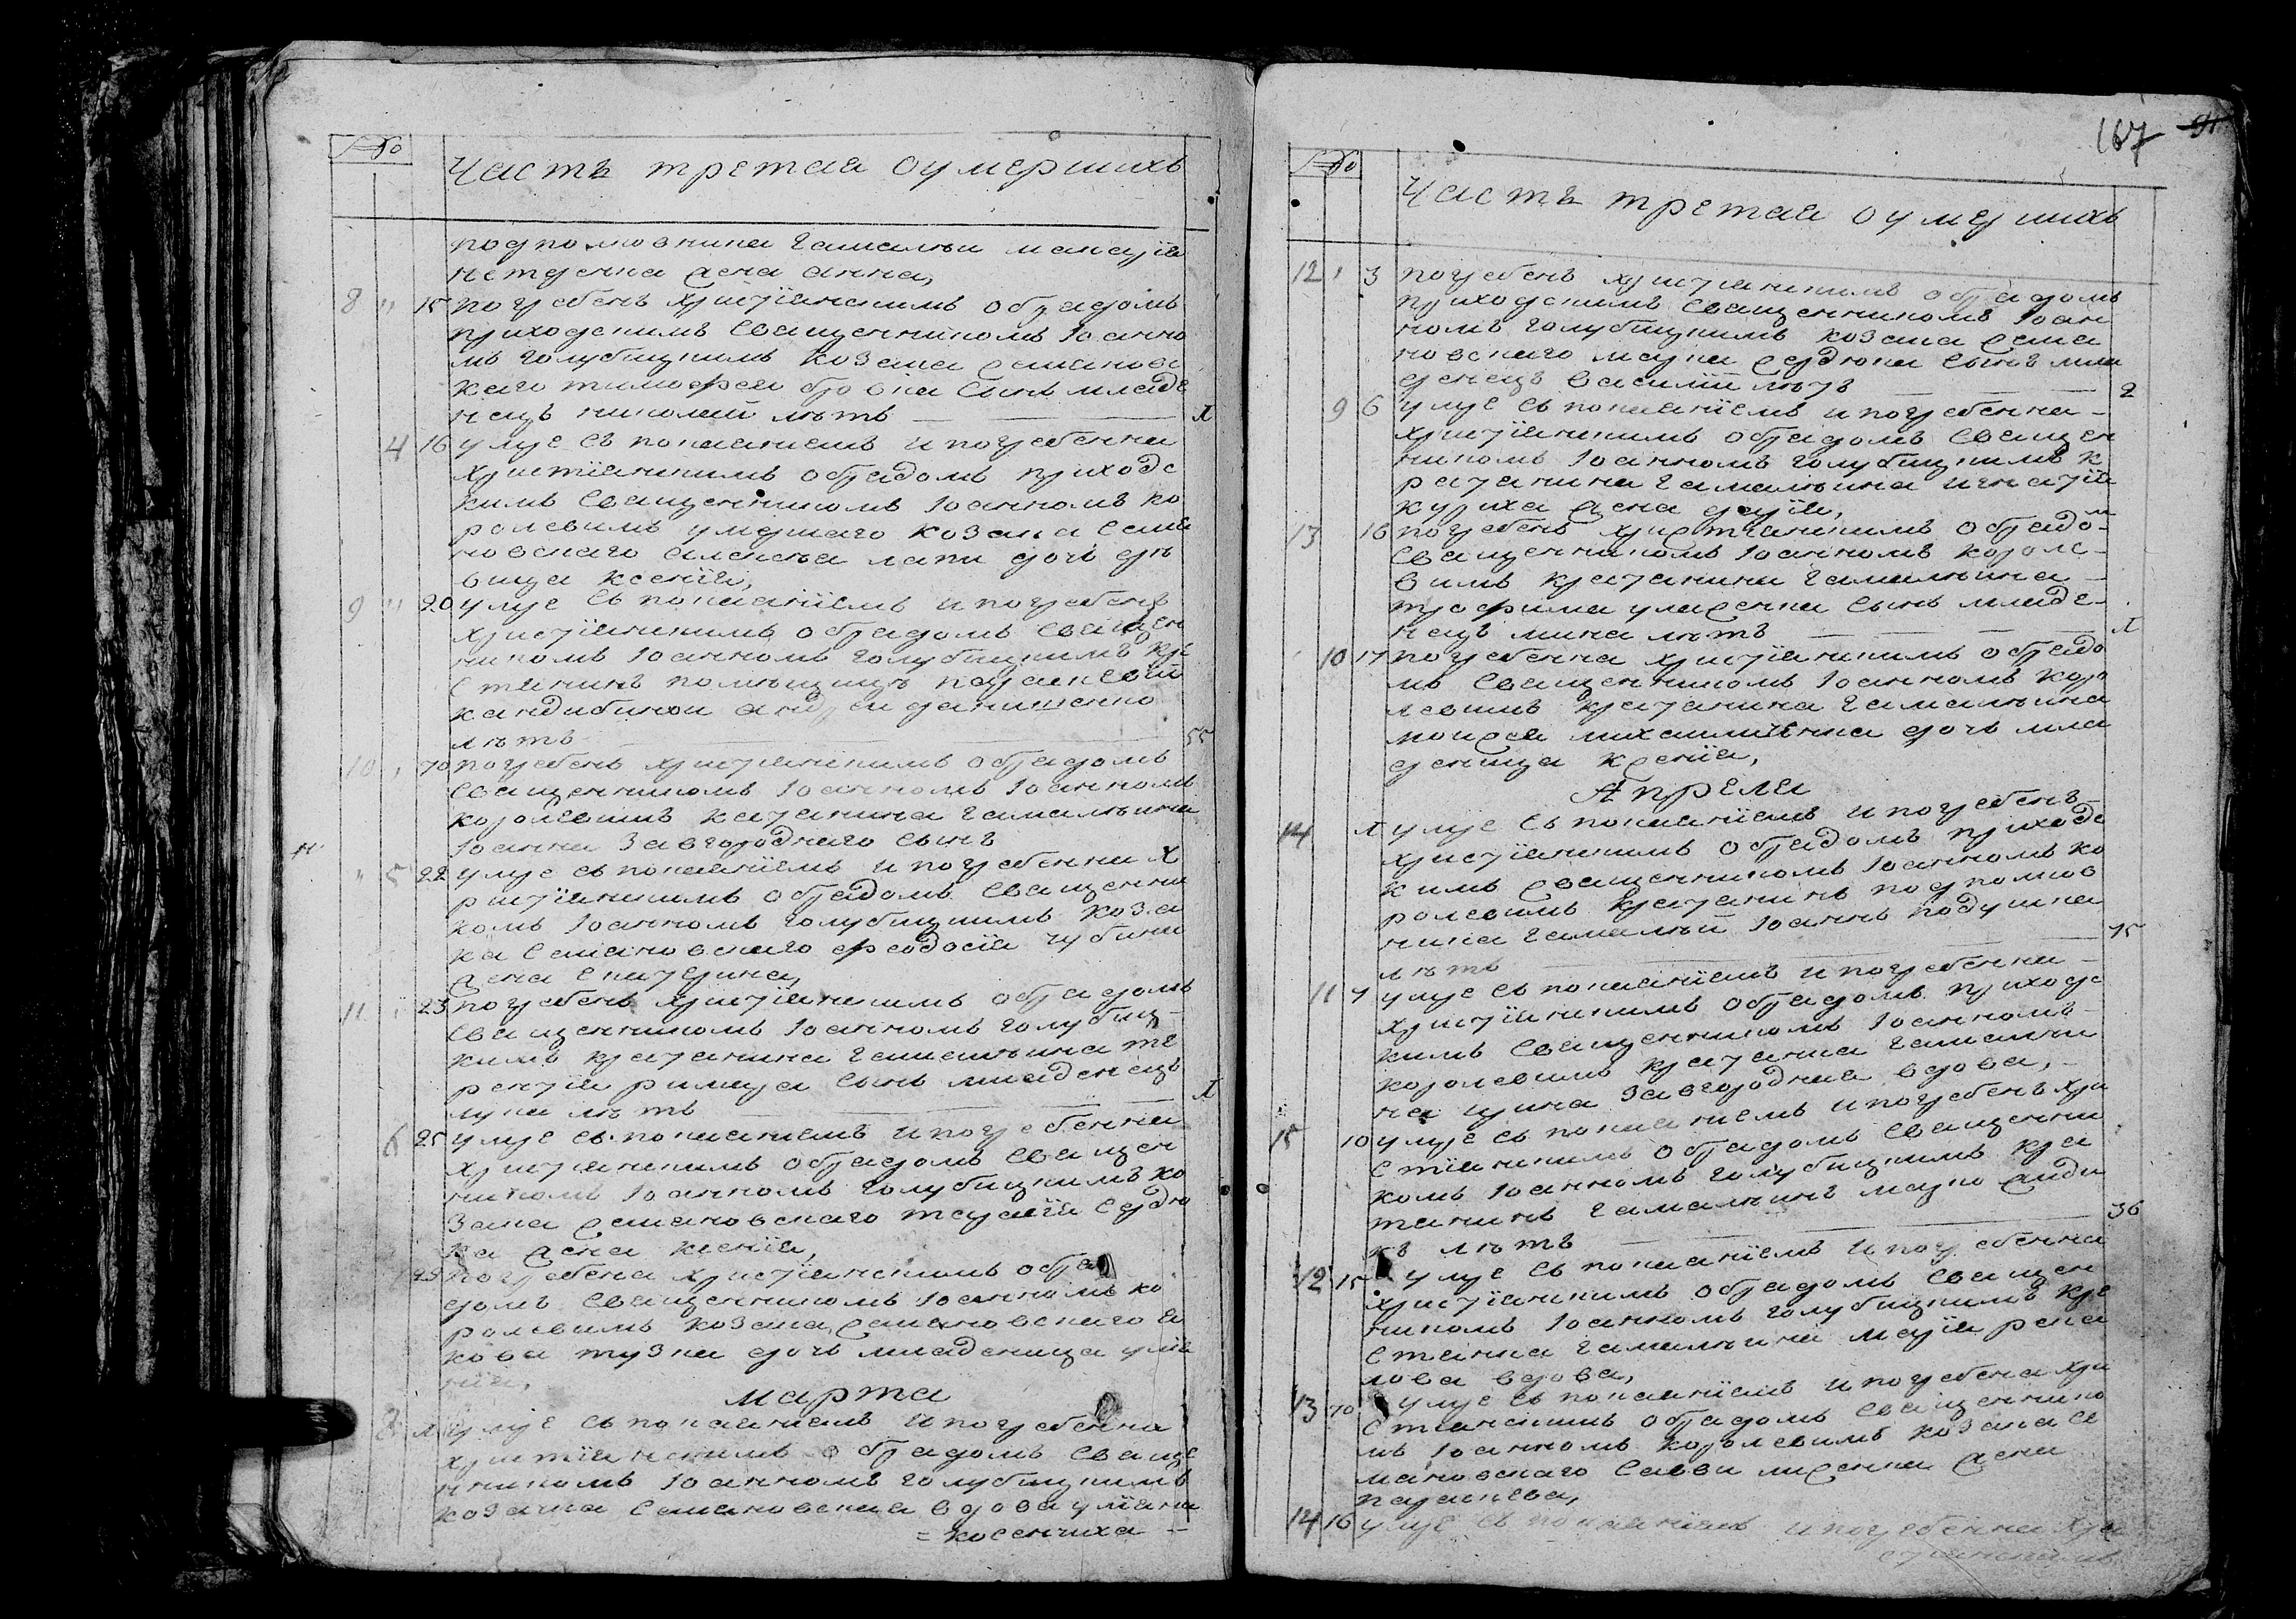 №
Часть третая оумершихъ
подполковника гамалѣи
жена анна,
8 15 погребенъ христіанскимъ обрядомъ
приходскимъ священникомъ Іоанно
мъ голубицкимъ козака семановс
каго тимофея бровка сынъ младе
нецъ николай лѣтъ 1
4 16 умре съ покаяніемъ и погребенна
христіанскимъ обрядомъ приходс
кимъ священникомъ Іоанномъ ко
ролевимъ умершаго козака сема
новскаго алексѣя дочь дѣ
вица ксенія,
9 20 умре съ покаяніемъ и погребенъ
христіанскимъ обрядомъ священ
никомъ Іоанномъ голубицкимъ кре
стянинъ помѣщицѣ
кандибиной андрей данишенко
лѣтъ 55
10 погребенъ христіанскимъ обрядомъ
священникомъ Іоанномъ Іоанномъ
королевимъ гамалѣина
Іоанна завгороднаго сынъ
5 22 умре съ покаяніемъ и погребенна х
ристіанскимъ обрядомъ священни
комъ Іоанномъ голубицкимъ коза
ка семановскаго феодосія чубини
жена екатерина,
11 23 погребенъ христіанскимъ обрядомъ
священникомъ Іоанномъ голубиц-
кимъ крестянина гамалѣина те
рентія сынъ младенецъ
лука лѣтъ 1
6 25 умре съ покаяніемъ и погребенна
христіанскимъ обрядомъ священ
никомъ Іоанномъ голубицкимъ ко
зака семановскаго сердю
ка жена ксенія,
погребена христіанскимъ обря
домъ священникомъ Іоанномъ ко
ролевимъ козака семановскаго я
кова тузки дочь младеница уліа
нія,
марта
8 1 умре съ покаяніемъ и погребенна
христіанскимъ обрядомъ свяще
нникомъ Іоанномъ голубицкимъ
козачка семановская вдова уліана
= косенчиха -
167
№
Часть третая оумершихъ
12 3 погребенъ христіанскимъ обрядомъ
приходскимъ священникомъ Іоан
номъ голубицкимъ козака сема
новскаго марка сердюка сынъ мла
денецъ василій лѣтъ 2
9 6 умре съ покаяніемъ и погребенна -
христіанскимъ обрядомъ священ
никомъ Іоанномъ голубицкимъ к
рестянина гамалѣина игнатія
жена
13 16 погребенъ христіанскимъ обрядо-
священникомъ Іоанномъ короле-
вимъ крестянина гамалѣина -
трофима сынъ младе-
нецъ мина лѣтъ 1
10 17 погребенна христіанскимъ обрядо
мъ священникомъ Іоанномъ коро
левимъ крестянина гамалѣина
моисея михайленка дочь мла
деница ксенія,
Апреля
14 1 умре съ покаяніемъ и погребенъ
христіанскимъ обрядомъ приходс
кимъ священникомъ Іоанномъ ко
ролевимъ крестянинъ подполков
ника гамалѣи Іоаннъ подушка
лѣтъ 75
11 умре съ покаяніемъ и погребенна -
христіанскимъ обрядомъ приходс
кимъ священникомъ Іоанномъ -
королевимъ крестянка гамалѣи
на ирина завгородная вдова,
15 10 умре съ покаяніемъ и погребенъ хри
стіанскимъ обрядомъ священни
комъ Іоанномъ голубицкимъ кре
стянинъ гамалѣинъ марко
лѣтъ 36
12 15 умре съ покаяніемъ и погребенна
христіанскимъ обрядомъ священ
никомъ Іоанномъ голубицкимъ кре
стянка гамалѣина марія
вдова,
13 умре съ покаяніемъ и погребена хри
стіанскимъ обрядомъ священнико
мъ Іоанномъ королевимъ козака се
мановскаго саввы жена
14 16 умре съ покаяніемъ и погребенна хри
стіанскимъ